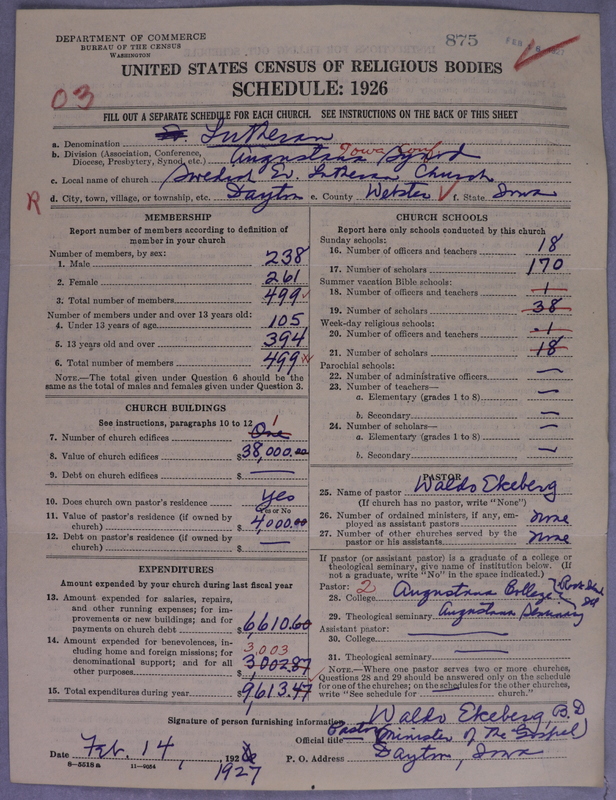 DEPARTMENT OF COMMERCE
BUREAU OF THE CENSUS
WASHINGTON
875
UNITED STATES CENSUS OF RELIGIOUS BODIES
SCHEDULE: 1926
03
FILL OUT A SEPARATE SCHEDULE FOR EACH CHURCH. SEE INSTRUCTIONS ON THE BACK OF THIS SHEET
a. Denomination Lutheran
b. Division (Association, Conference, Diocese, Presbytery, Synod, etc.) Augustana Synod Iowa Conf
c. Local name of church Swedish Ev. Lutheran Church
R
d. City, town, village, or township, etc. Dayton e. County Webster f. State Iowa
MEMBERSHIP
Report number of members according to definition of member in your church
Number of members, by sex:
1. Male 238
2. Female 261
3. Total number of members 499
Number of members under and over 13 years old:
4. Under 13 years of age 105
5. 13 years old and over 394
6. Total number of members 499
NOTE.—The total given under Question 6 should be the same as the total of males and females given under Question 3.
CHURCH BUILDINGS
See instructions, paragraphs 10 to 12
7. Number of church edifices One 1
8. Value of church edifices $38,000.00
9. Debt on church edifices $ —
10. Does church own pastor's residence Yes
Yes or No
11. Value of pastor's residence (if owned by church) $4,000.00
12. Debt on pastor's residence (if owned by church) $ —
EXPENDITURES
Amount expended by your church during last fiscal year
13. Amount expended for salaries, repairs, and other running expenses; for improvements or new buildings; and for payments on church debt $6610.60
14. Amount expended for benevolences, including home and foreign missions; for denominational support; and for all other purposes $3,002.87
3,003
15. Total expenditures during year $9613.47
CHURCH SCHOOLS
Report here only schools conducted by this church
Sunday schools:
16. Number of officers and teachers 18
17. Number of scholars 170
Summer vacation Bible schools:
18. Number of officers and teachers 1
19. Number of scholars 38
Week-day religious schools:
20. Number of officers and teachers 1
21. Number of scholars 18
Parochial schools:
22. Number of administrative officers —
23. Number of teachers—
a. Elementary (grades 1 to 8) —
b. Secondary —
24. Number of scholars—
a. Elementary (grades 1 to 8) —
b. Secondary —
PASTOR
25. Name of pastor Waldo Ekeberg
(If church has no pastor, write "None")
26. Number of ordained ministers, if any, employed as assistant pastors none
27. Number of other churches served by the pastor or his assistants none
If pastor (or assistant pastor) is a graduate of a college or theological seminary, give name of institution below. (If not a graduate, write "No" in the space indicated.)
Pastor: 2
28. College Augustana College Rock Island Ill
29. Theological seminary Augustana Seminary
Assistant pastor:
30. College —
31. Theological seminary —
NOTE.—Where one pastor serves two or more churches, Questions 28 and 29 should be answered only on the schedule for one of the churches; on the schedules for the other churches, write "See schedule for church."
Signature of person furnishing information Waldo Ekeberg, B.D
Official title Pastor Minister of The Gospel
Date Feb. 14, 1926 1927
P. O. Address Dayton, Iowa
8—5518a 11—9054